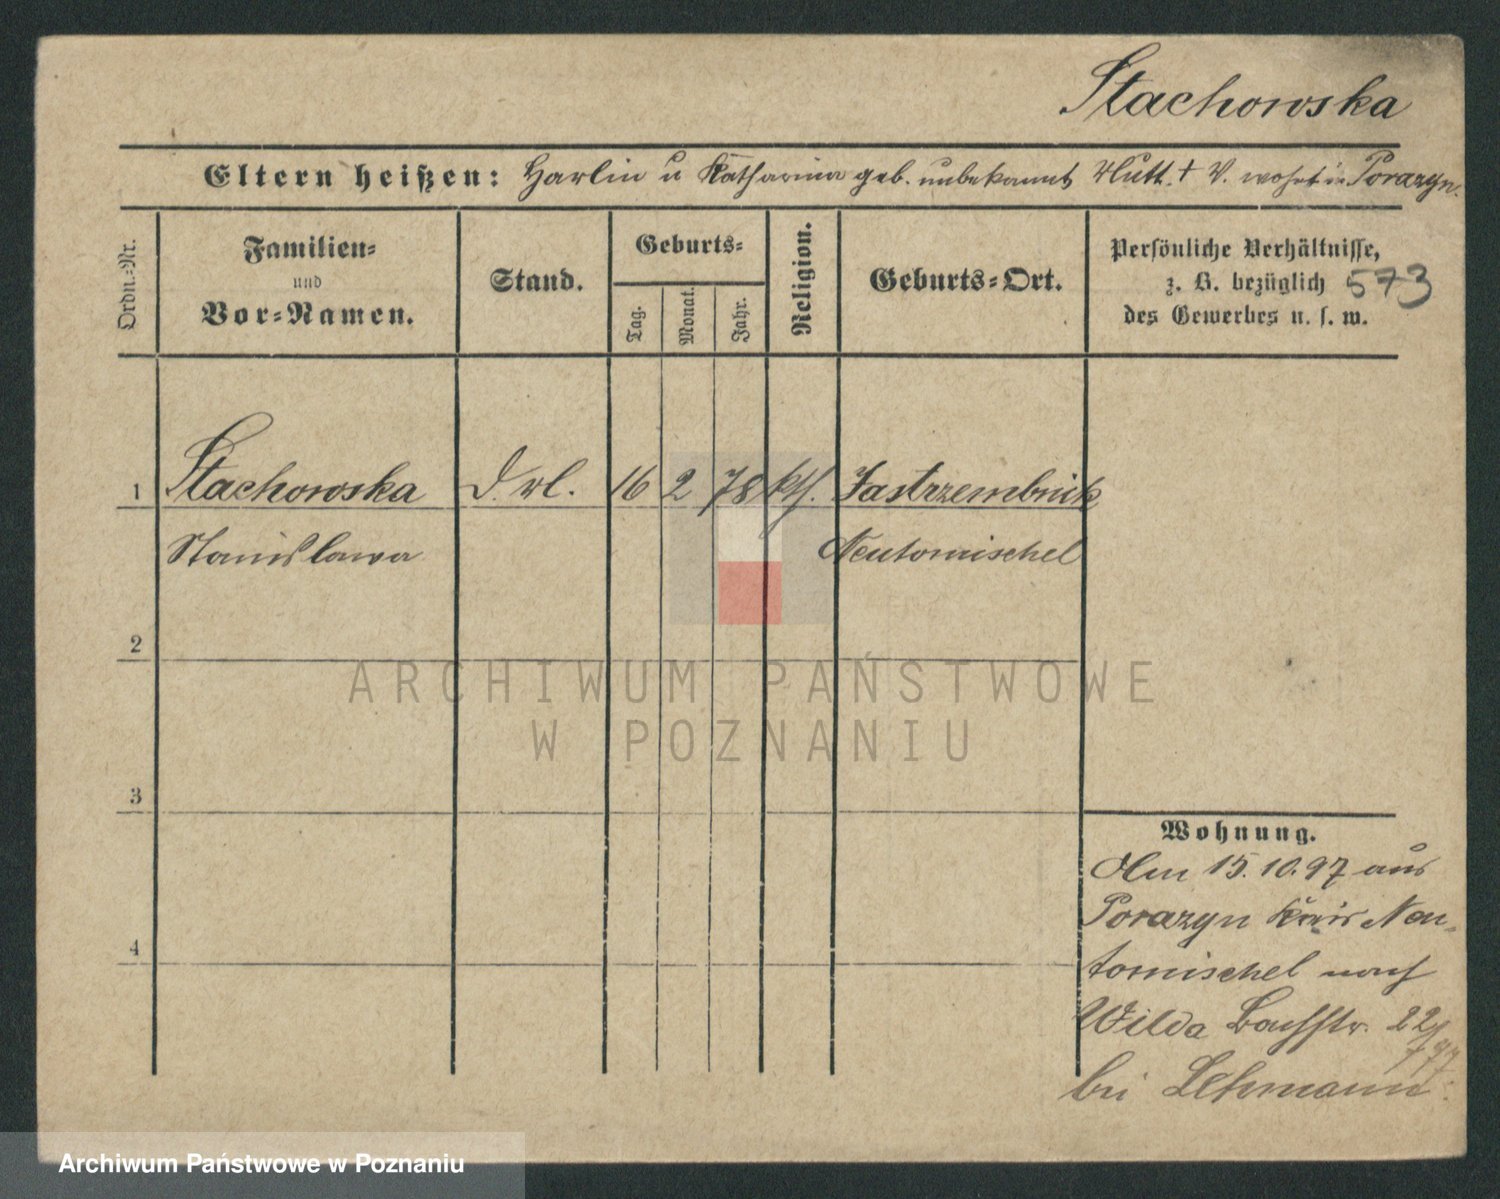 Stachowska
Eltern heißen: Martin u Katharina geb. unbekannt Mutt. † V. wohnt in Porazyn.
Ordn.-Nr.
Familien-
und
Vor-Namen.
Stand.
Geburts-
Tag.
Monat.
Jahr.
Religion.
Geburts-Ort.
Persönliche Verhältnisse,
z. B. bezüglich 573
des Gewerbes u. s. w.
1 Stachowska 16 2 78 kth. Jastrzembnik
Stanislawa Neutomischel
2
3
4
Wohnung.
Am 15.10.97 aus
Porazyn Kreis Neu-
tomischel nach
Wilda Bachstr. 22
bei Lehmann
ARCHIWUM PAŃSTWOWE
W POZNANIU
Archiwum Państwowe w Poznaniu